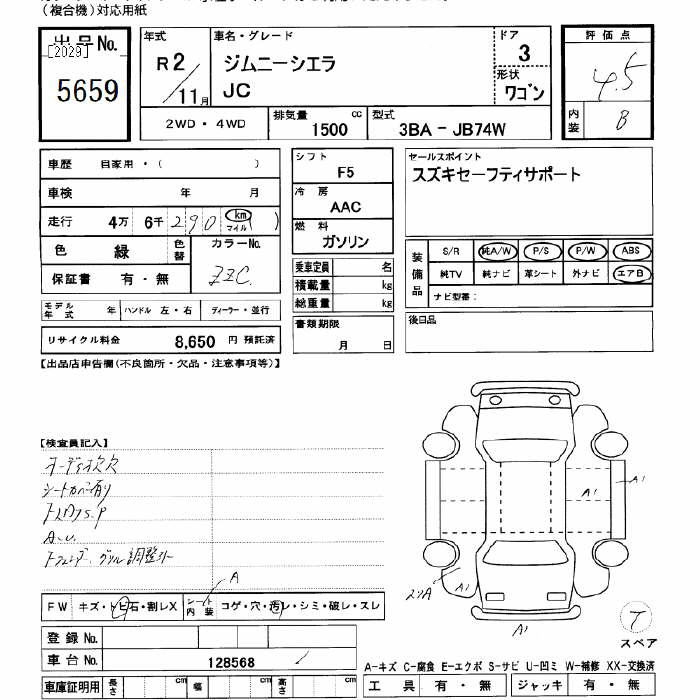 (複合機)対応用紙
出品No.
[2029]
5659
年式
R2/11月
車名・グレード
ジムニーシエラ
JC
ドア
3
形状
ワゴン
評価点
4.5
内装
B
2WD・4WD
排気量
1500 cc
型式
3BA - JB74W
車歴 自家用・( )
車検 年 月
走行 4万 6千 290 km マイル ( )
色 緑 色替
カラーNo.
ZZC
保証書 有・無
モデル年式 年 ハンドル 左・右 ディーラー・並行
リサイクル料金 8,650 円 預託済
シフト
F5
冷房
AAC
燃料
ガソリン
乗車定員 名
積載量 kg
総重量 kg
書類期限
月 日
セールスポイント
スズキセーフティサポート
装備品
S/R 純A/W P/S P/W ABS
純TV 純ナビ 革シート 外ナビ エアB
ナビ型番:
後日品
【出品店申告欄(不良箇所・欠品・注意事項等)】
【検査員記入】
オーディオ欠
シートカバー有り
A.U.
調整外
A
FW キズ・トビ石・割レX シート内装 コゲ・穴・汚レ・シミ・破レ・スレ
登録No.
車台No. 128568
車庫証明用 長さ cm 幅 cm 高さ cm
A1
A1
A1
T
スペア
A-キズ C-腐食 E-エクボ S-サビ U-凹ミ W-補修 XX-交換済
工具 有・無 ジャッキ 有・無